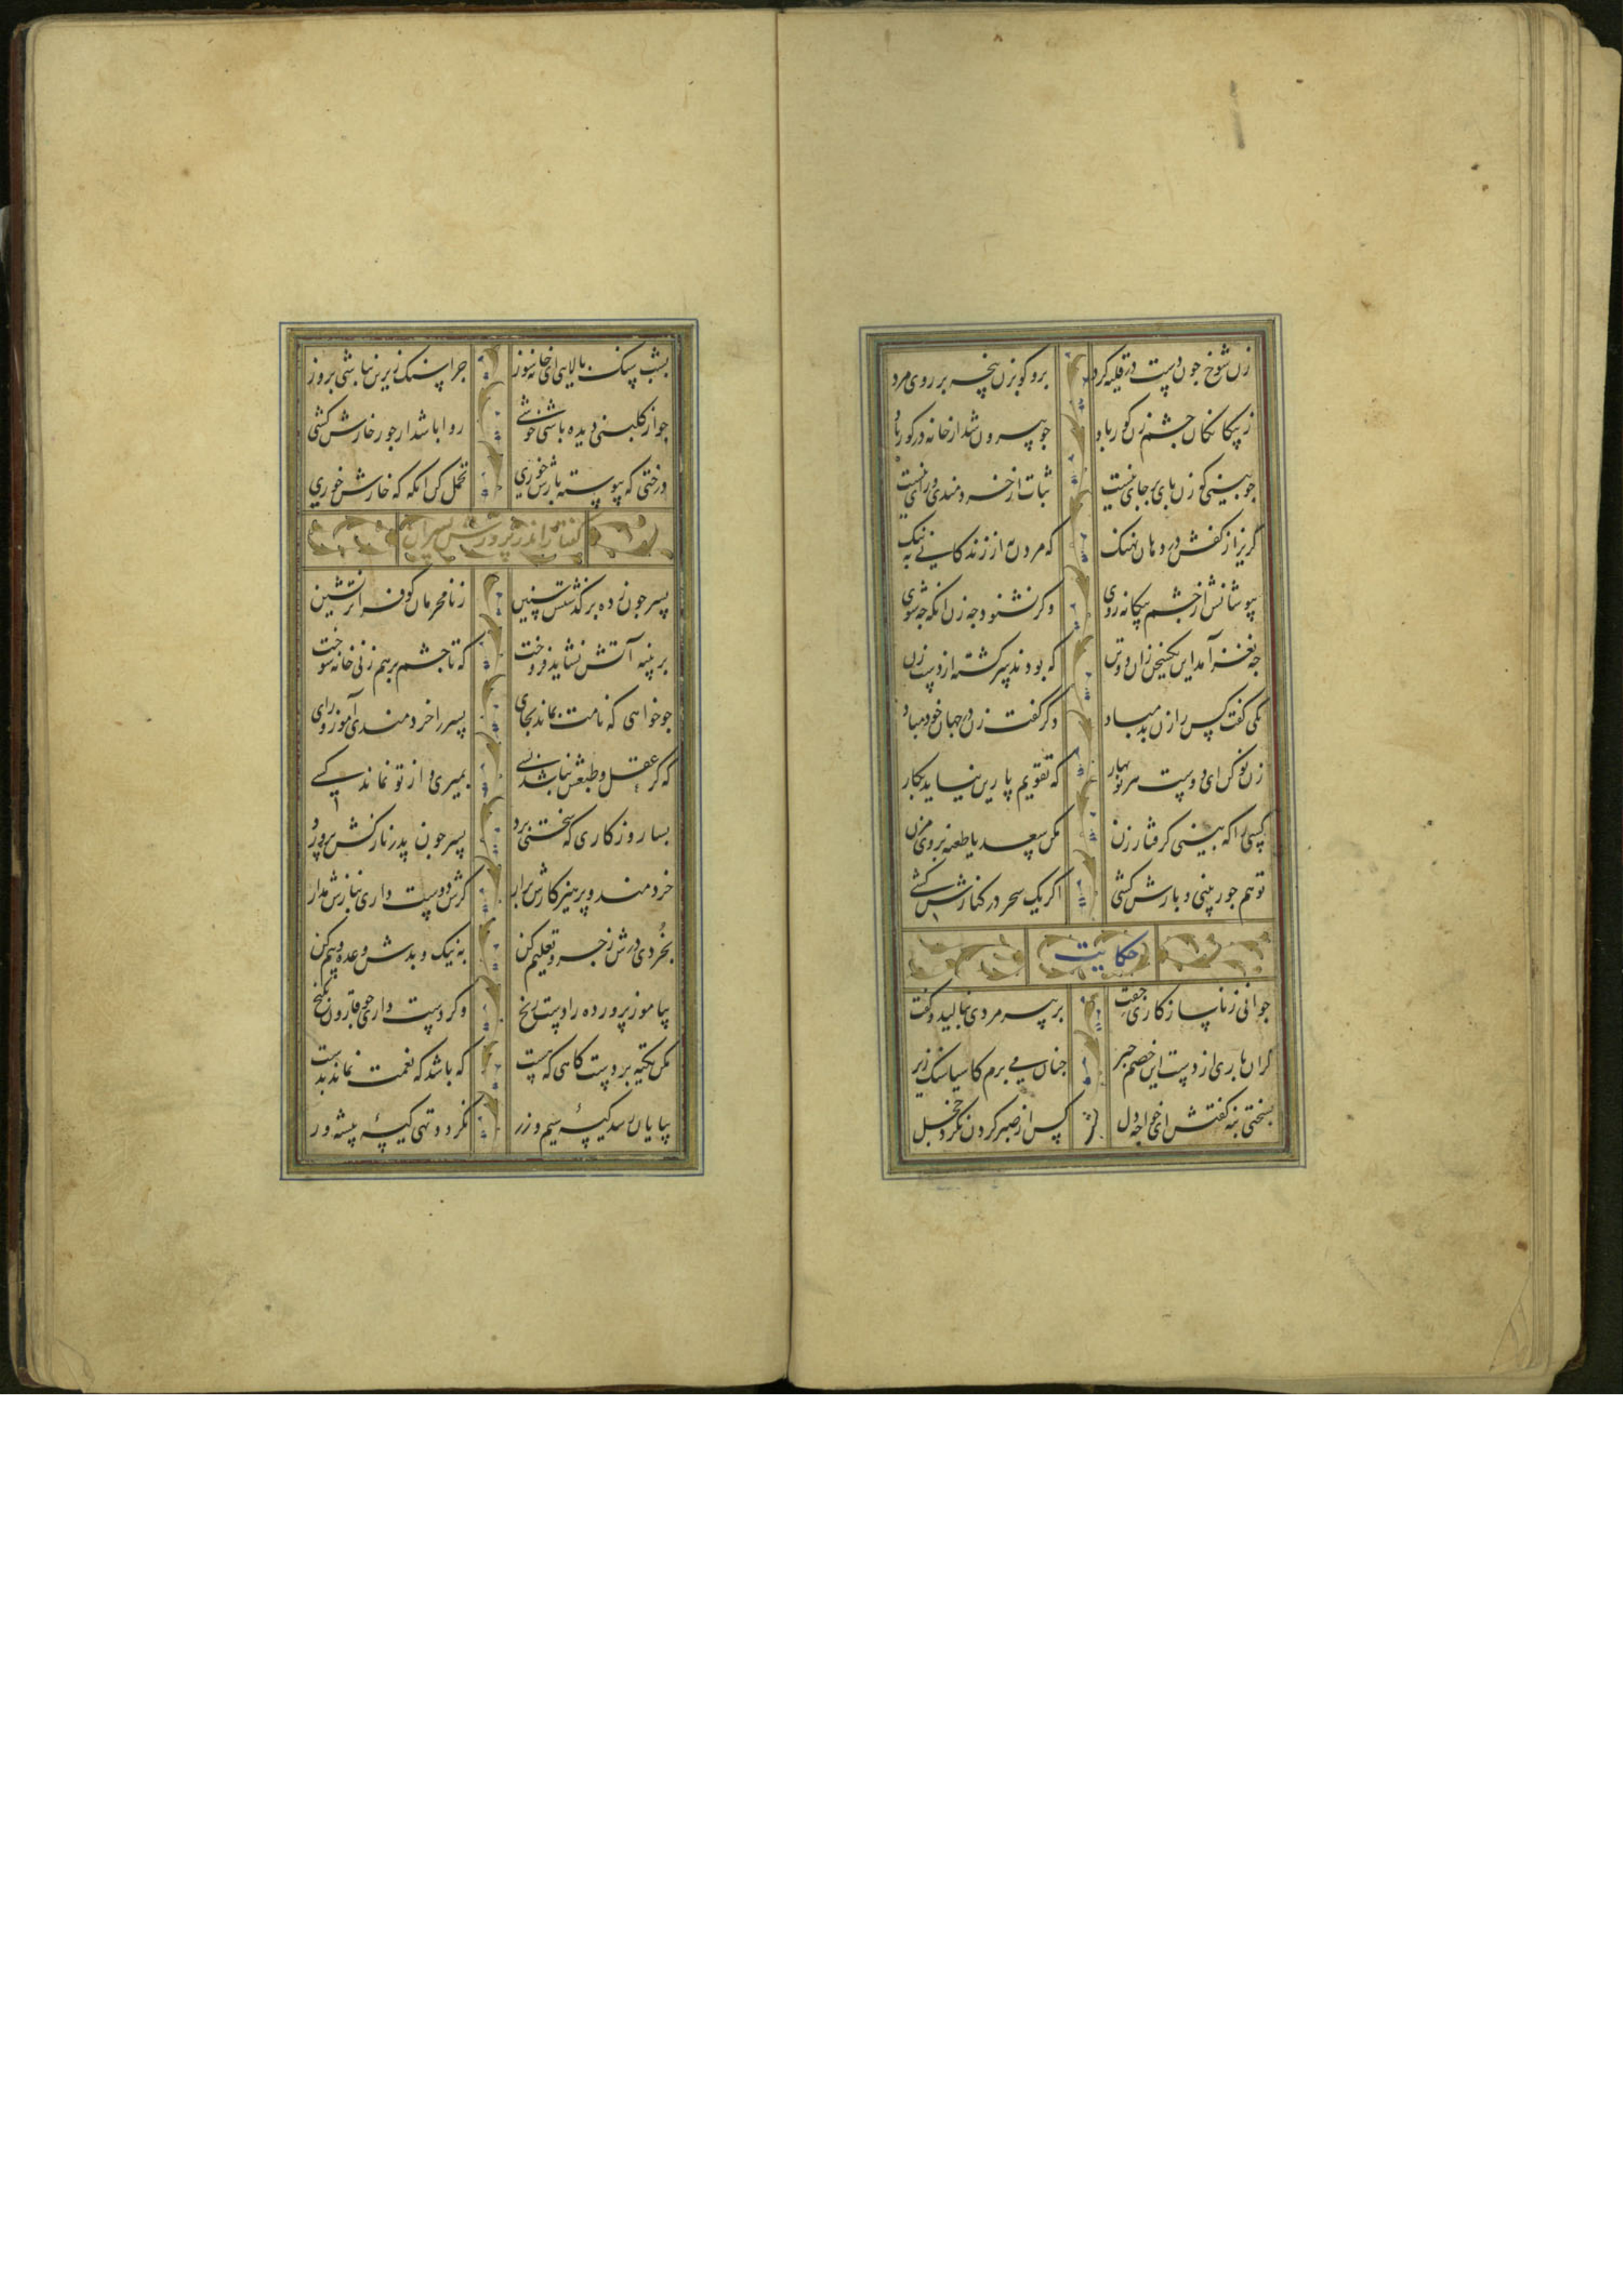 زن شوخ چون دست در قلیه کرد برو کو بزن پنجه بر روی مرد
ز بیکانکان چشم زن کور باد چو بیرون شد از خانه در کور باد
چو بینی کی زن پای بر جای نیست ثبات از خردمندی و رای نیست
کریز از کفش در دهان نهنک که مردن به از زندکانی به ننک
بپوشانش از چشم بیکانه روی وکر نشنود چه زن آنکه چه شوی
چه نغز آمد این یکسخن زان دو تن که بودند سرکشته از دست زن
یکی کفت کس را زن بد مباد دکر کفت زن در جهان خود مباد
زن نو کن ای دوست هر نوبهار که تقویم پارین نیاید بکار
کسی را که بینی کرفتار زن مکن سعدیا طعنه بروی مزن
تو هم جور بینی و بارش کشی اکر یک سحر در کنارش کشی
حکایت
جوانی ز ناسازکاری جفت بر پیرمردی بنالید و کفت
کران باری از دست این خصم چیر چنان می برم کاسیا سنک زیر
بسختی بنه کفتش ای خواجه دل پس از صبر کردن نکردد خجل
بشب سنک بالایی ای خانه سوز چرا سنک زیرین نباشی بروز
چو از کلبنی دیده باشی خوشی روا باشد ار جور خارش کشی
درختی که پیوسته بارش خوری تحمل کن آنکه که خارش خوری
کفتار اندر پرورش پسران
پسر چون ز ده بر کذشتش سنین ز نامحرمان کو فراتر نشین
بر پنبه آتش نشاید فروخت که تا چشم برهم زنی خانه سوخت
چو خواهی که نامت بماند بجای پسر را خردمندی آموز و رای
که کر عقل و طبعش نباشد بسی بمیری و از تو نماند کسی
بسا روزکاری که سختی برد پسر چون پدر نازکش پرورد
خردمند و پرهیزکارش برار کرش دوست داری بنازش مدار
بخردی درش زجر و تعلیم کن به نیک و بدش وعده و بیم کن
بیاموز پرورده را دست رنج وکر دست داری چو قارون بکنج
مکن تکیه بر دستکاهی که هست که باشد که نعمت نماند بدست
بپایان رسد کیسه سیم و زر نکردد تهی کیسه پیشه ور